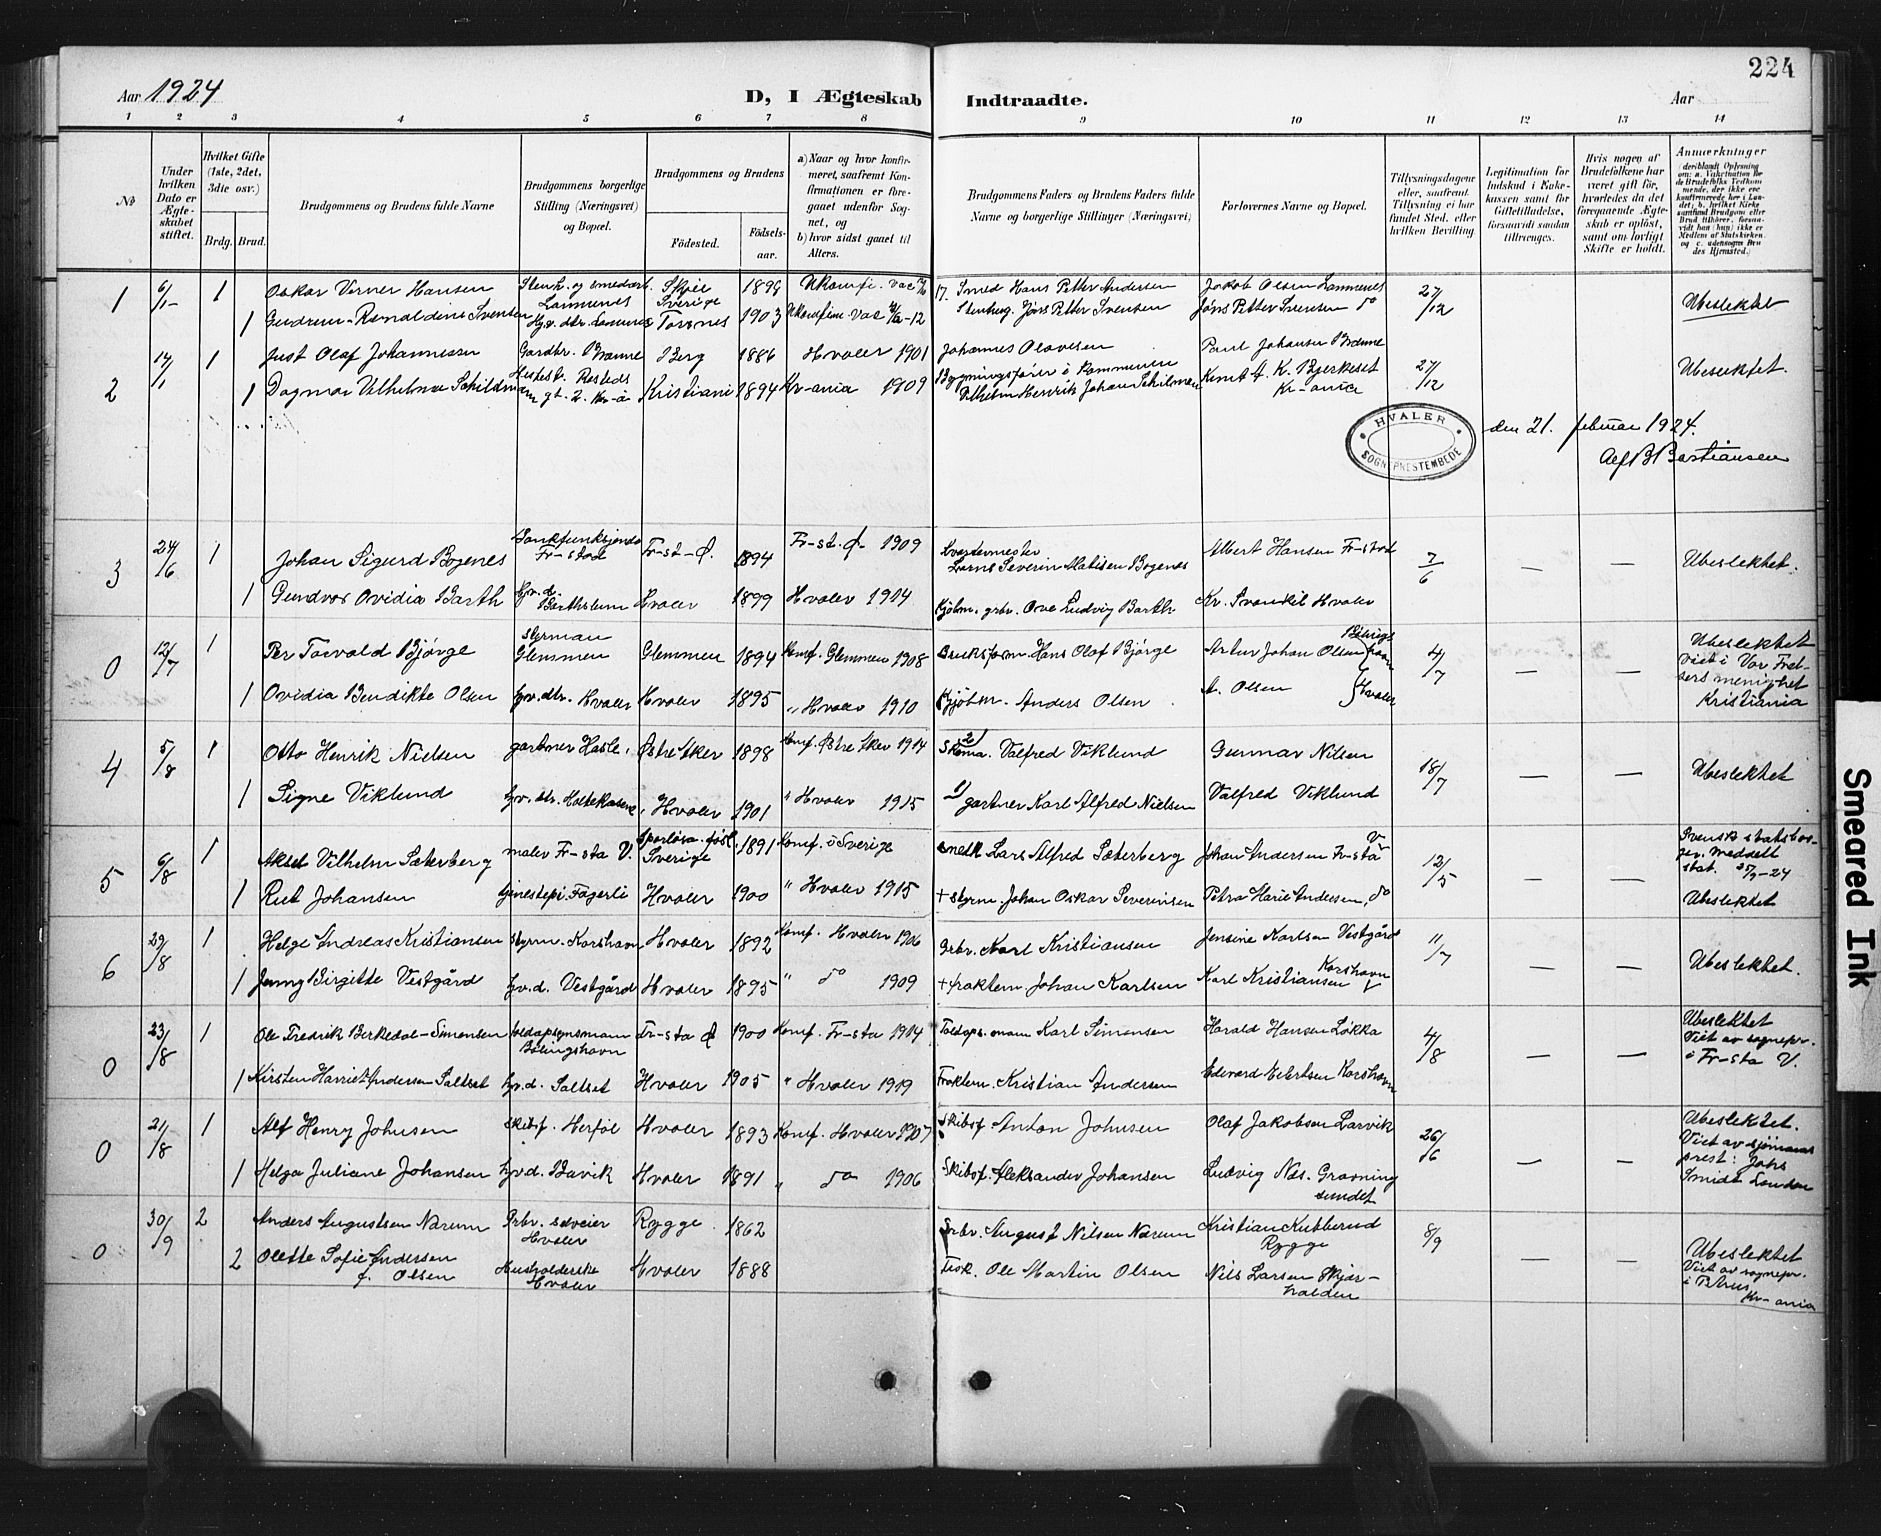 224
Aar 1924
D, I Ægteskab Indtraadte.
Aar
1 2 3 4 5 6 7 8 9 10 11 12 13 14
No
Under hvilken Dato er Ægteskabet stiftet.
Hvilket Gifte (1ste, 2det, 3die osv.)
Brdg. Brud.
Brudgommens og Brudens fulde Navne
Brudgommens borgerlige Stilling (Næringsvei) og Bopæl.
Brudgommens og Brudens
Födested.
Födsels-aar.
a) Naar og hvor konfirmeret, saafremt Konfirmationen er foregaaet udenfor Sognet, og
b) hvor sidst gaaet til Alters.
Brudgommens Faders og Brudens Faders fulde Navne og borgerlige Stillinger (Næringsvei)
Forlovernes Navne og Bopæl.
Tillysningsdagene eller, saafremt Tillysning ei har fundet Sted, efter hvilken Bevilling.
Legitimation for Indskud i Enkekassen samt for Giftetilladelse, forsaavidt saadan tiltrænges.
Hvis nogen af Brudefolkene har været gift för, hvorledes da det foregaaende Ægteskab er oplöst, samt om lovligt Skifte er holdt.
Anmærkninger
1 6/1 1 Oskar Verner Hansen Skjeie Sverige 1899 Ukonfi. vac 17. Smed Hans Petter Andersen Jakob Olsen Lammenes 27/12 Ubeslektet
1 Gudrun Ronaldine Svensen Torsnes 1903 Ukonfirm. Vac -12 Stenhug. Jöns Petter Svensen Jöns Petter Svensen do
2 14/1 1 Just Olaf Johannessen Gardbr. Brænne Berg 1886 Hvaler 1901 Johannes Olavesen Paul Johansen Brænne 27/12 Ubeslektet.
1 Dagmar Vilhelmine Schildman Kristiani 1894 Kr-ania 1909 Bygningsfører i Kommunen Vilhelm Henrik Johan Schilman Knut A. K. Bjerkeset Kr-ania
HVALER SOGNEPRESTEMBEDE
den 21. februar 1924.
Alf B Bastiansen
3 24/6 1 Johan Sigurd Bogenes Bankfunksjonær Fr-stad Fr-st-Ø. 1894 Fr-st. Ø. 1909 Kvartermester Lars Severin Matisen Bogenes Albert Hansen Fr-stad 7/6 — — Ubeslektet.
1 Gundvor Ovidia Barth hv.d. Barthslum Hvaler 1899 Hvaler 1914 Kjøbm. grbr. Ove Ludvig Barth Kr. Svankil Hvaler
0 12/7 1 Per Torvald Bjørge styrman Glemmen Glemmen 1894 Konf. Glemmen 1908 Bruksform. Hans Olaf Bjørge Artur Johan Olsen 4/7 — — Ubeslektet Viet i Vor Frelsers menighet Kristiania
1 Ovidia Bendikte Olsen hv. dtr. Hvaler Hvaler 1895 " Hvaler 1910 Kjøbm. Anders Olsen A. Olsen Hvaler
4 5/8 1 Otto Henrik Nielsen gartner Hasle, Østre Aker 1898 Konf. Østre Aker 1914 2) Valfred Viklund Gunnar Nilsen 18/7 — — Ubeslektet
1 Signe Viklund hv. dtr. Holtekasene, Hvaler 1901 " Hvaler 1915 1) gartner Karl Alfred Nielsen Valfred Viklund
5 6/8 1 Aksel Vilhelm Sæterberg maler Fr-sta V. Sverige 1891 Konf. i Sverige smed Lars Alfred Sæterberg Johan Andersen Fr-sta V 12/5 — — Svensk statsborger. Meddelt stat. 25/9-24
1 Rut Johansen Fagerli Hvaler 1900 " Hvaler 1915 + styrm. Johan Oskar Severinsen Petra Marie Andersen, do Ubeslektet
6 29/8 1 Helge Andreas Kristiansen styrm. Korshavn Hvaler 1892 Konf. Hvaler 1906 Grbr. Karl Kristiansen Jensine Karlsen Vestgård 11/7 — — Ubeslektet.
1 Jenny Birgitte Vestgård hv.d. Vestgård Hvaler 1895 " do 1909 + fraktem. Johan Karlsen Karl Kristiansen Korshavn
0 23/8 1 Ole Fredrik Berkedal-Simonsen toldopsynsmann Fr-sta Ø 1900 Konf. Fr-sta 1914 Toldops.mann Karl Simonsen Harald Hansen Løkka 4/8 — — Ubeslektet Viet av sognepr. i Fr-sta V.
1 Kirsten Harriet Andersen Saltset hv.d. Saltset Hvaler 1905 " Hvaler 1919 Fraktem. Kristian Andersen Edvard Evertsen Korshavn
0 21/8 1 Alf Henry Johnsen skibsf. Herføl Hvaler 1893 Konf. Hvaler 1907 Skibsf Anton Johnsen Olaf Jakobsen Larvik 26/6 — — Ubeslektet. Viet av sjømansprest: Johs Smidt London
1 Helga Juliane Johansen hv.d. Bavik Hvaler 1891 " do 1906 Skibsf. Aleksander Johansen Ludvig Nås. Gravningsundet
0 30/9 2 Anders Augustsen Narum Grbr. Hvaler Rygge 1862 Grbr. August Nilsen Narum Kristian Kubberud Rygge 8/9 — — Ubeslektet Viet av sognepr. i Petrus Kr-ania
2 Olette Sofie Andersen f. Olsen Husholderske Hvaler Hvaler 1888 Fisk. Ole Martin Olsen Nils Larsen Skjærhalden
Smeared Ink